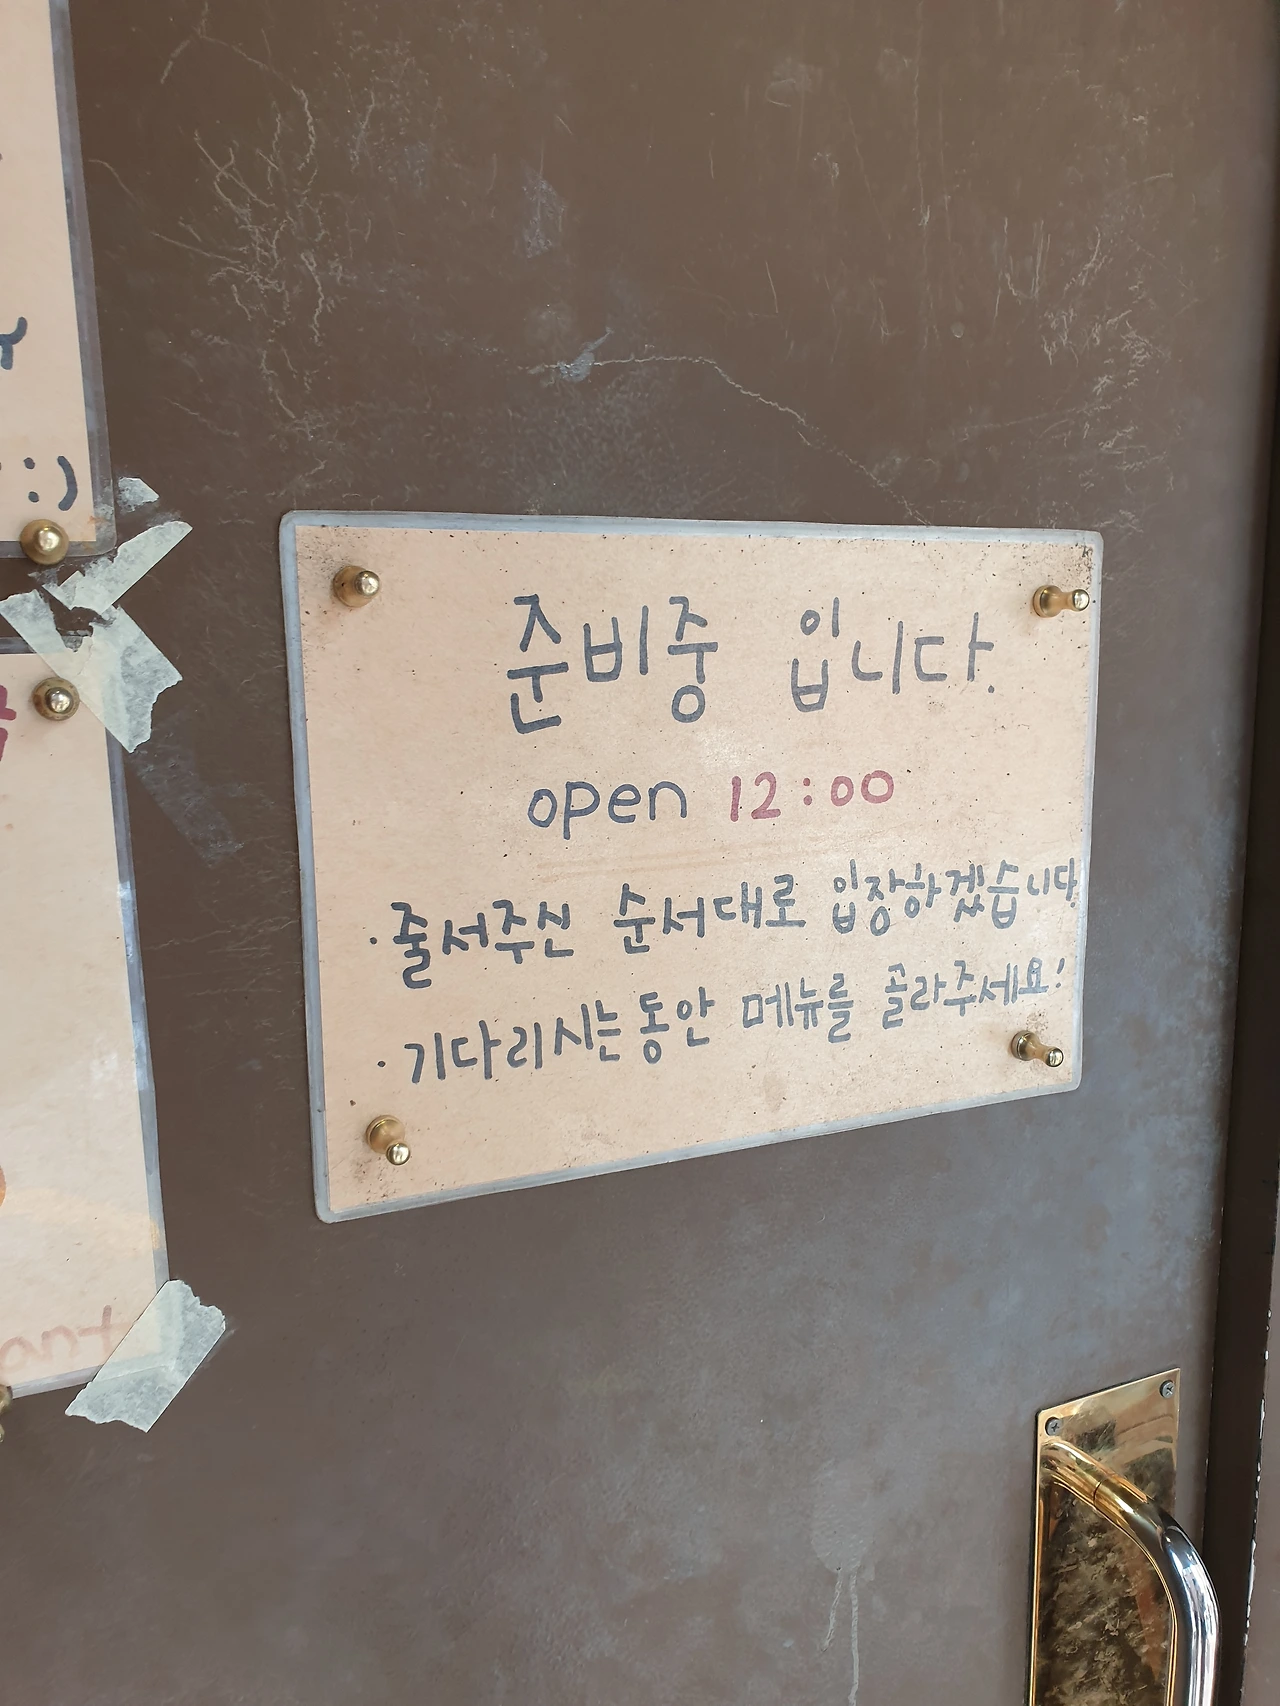 :)
준비중 입니다.
open 12:00
· 줄서주신 순서대로 입장하겠습니다.
· 기다리시는동안 메뉴를 골라주세요!